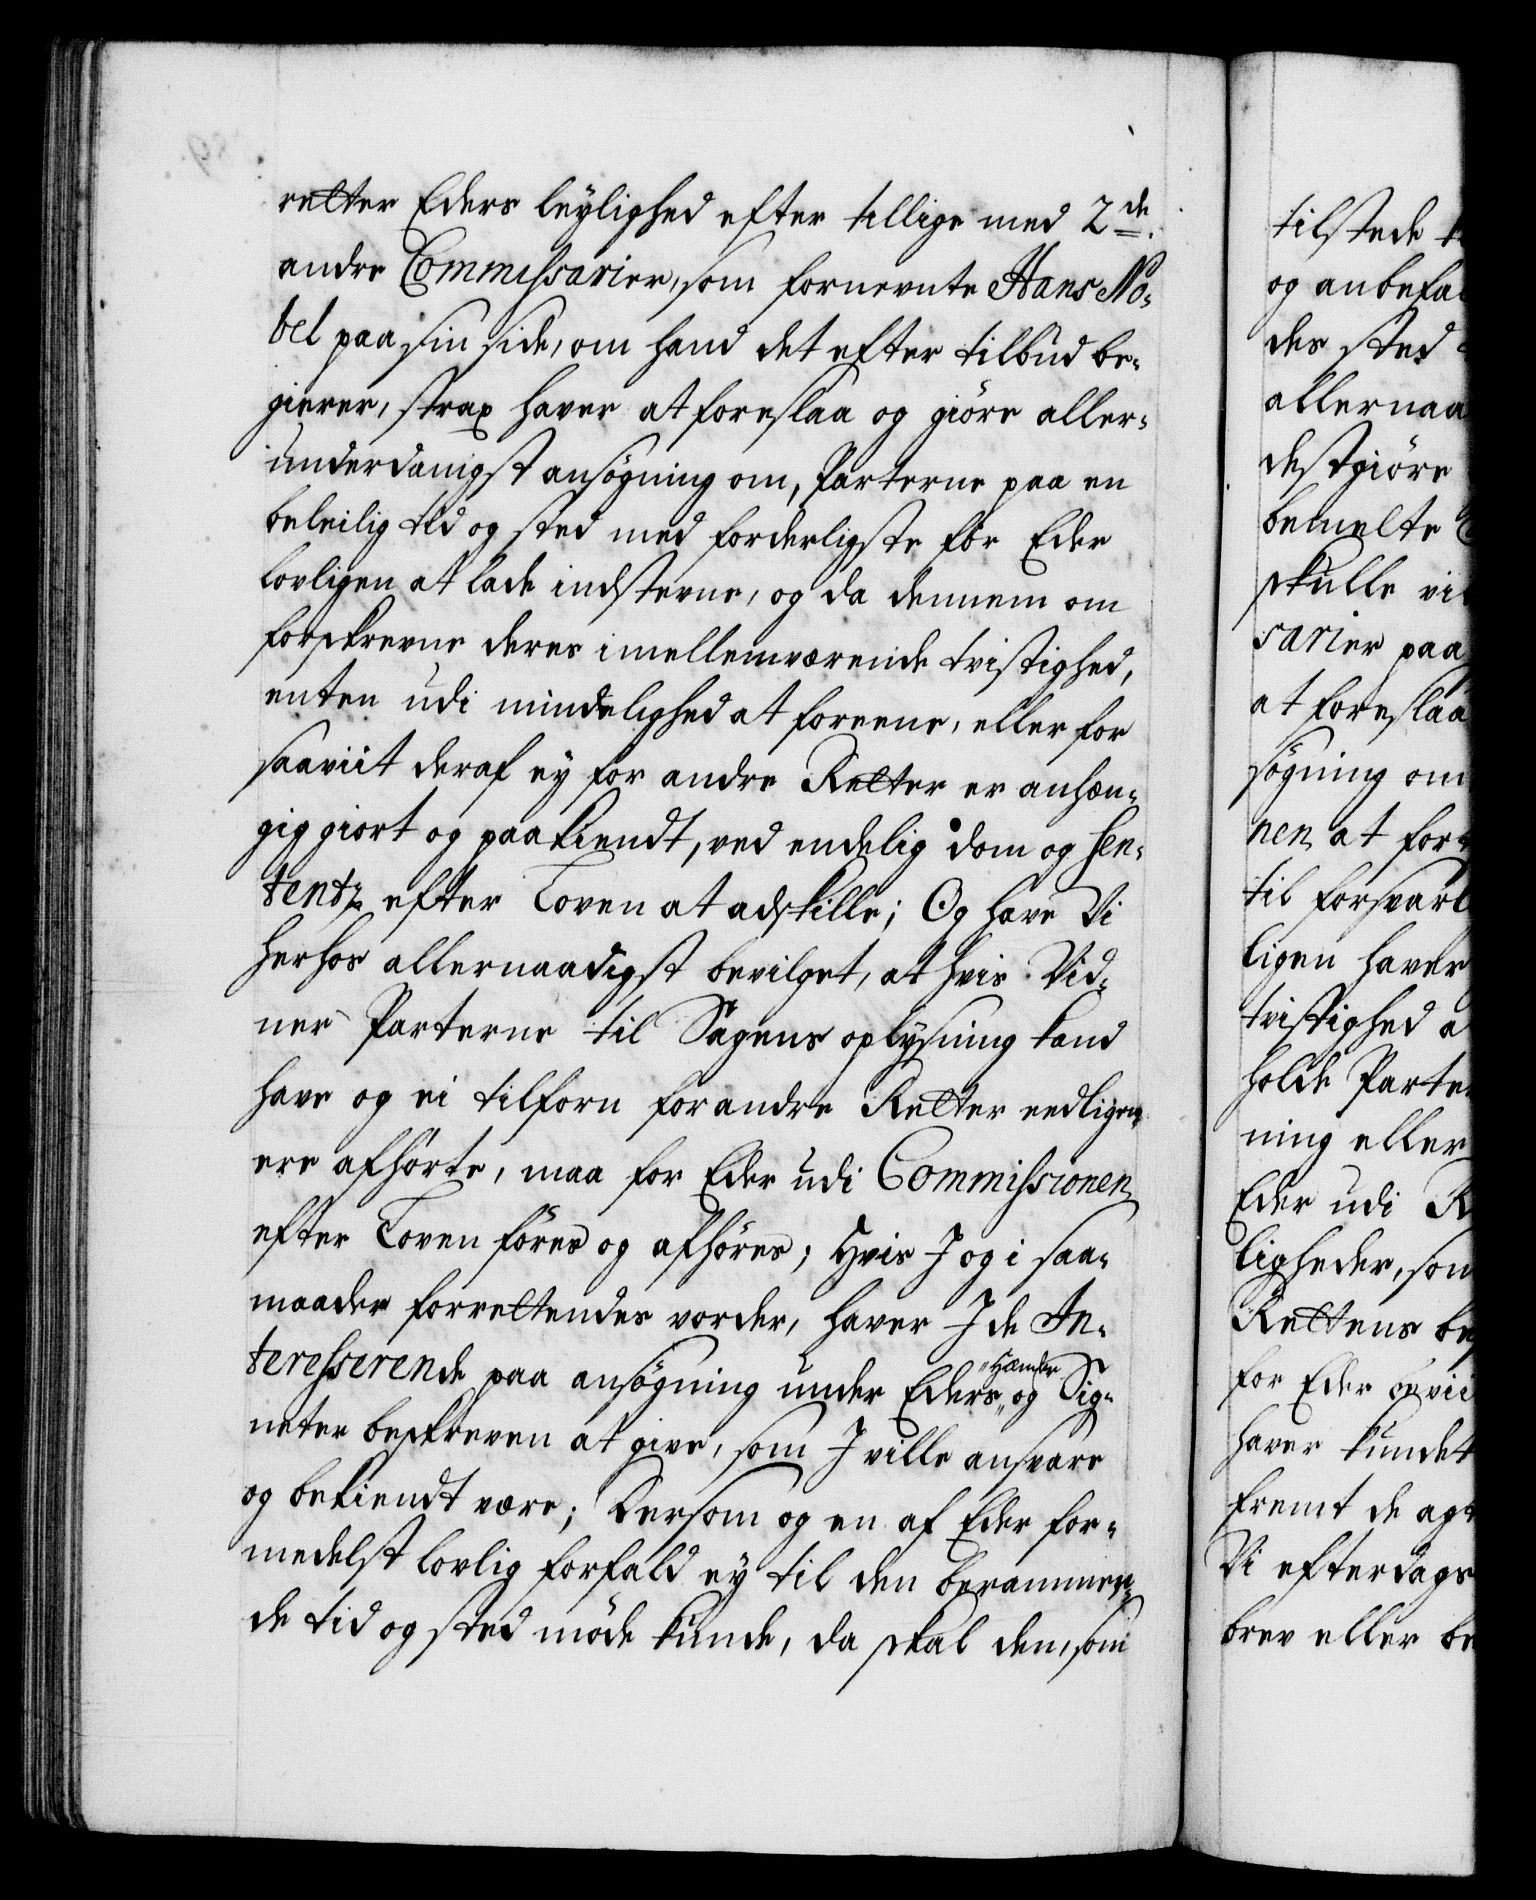 retter Eders leylighed efter tillige med 2de.
andre Commissarier, som fornevnte Hans No-
bel paa sin side, om hand det efter tilbud be-
gierer, strax haver at foreslaa og giöre aller-
underdanigst ansögning om, Parterne paa en
beleilig tid og sted med forderligste for Eder
lovligen at lade indstevne, og da dennem om
forskrevne deres imellemværende tvistighed,
enten udi mindelighed at foreene, eller for
saaviit deraf ey for andre Retter er anhæn-
gig giort og paakiendt, ved endelig dom og Sen-
tentz efter Loven at adskille; Og have Vi
herhos allernaadigst bevilget, at hvis Vid-
ner Parterne til Sagens oplysning kand
have og ei tilforn for andre Retter eedligen
ere afhörte, maa for Eder udi Commissionen
efter Loven föres og afhöres; Hvis J og i saa-
maader forrettendes vorder, haver J de In-
teresserende paa ansögning under Eders Hænder og Sig-
neter beskreven at give, som J ville ansvare
og bekiendt være; Dersom og en af Eder for-
medelst lovlig forfald ey til den berammen-
de tid og sted möde kunde, da skal den, som
tilstede
og anbefa
des sted
allernaa
destgiöre
bemelte
skulle vi
sarier paa
at foreslaa
sögning om
nen at for
til forsvarl
ligen haver
tvistighed a
holde Parte
ning eller
Eder udi R
ligheder, som
Rettens be
for Eder
haver kundet
fremt de agt
Vi efterdags
brev eller be